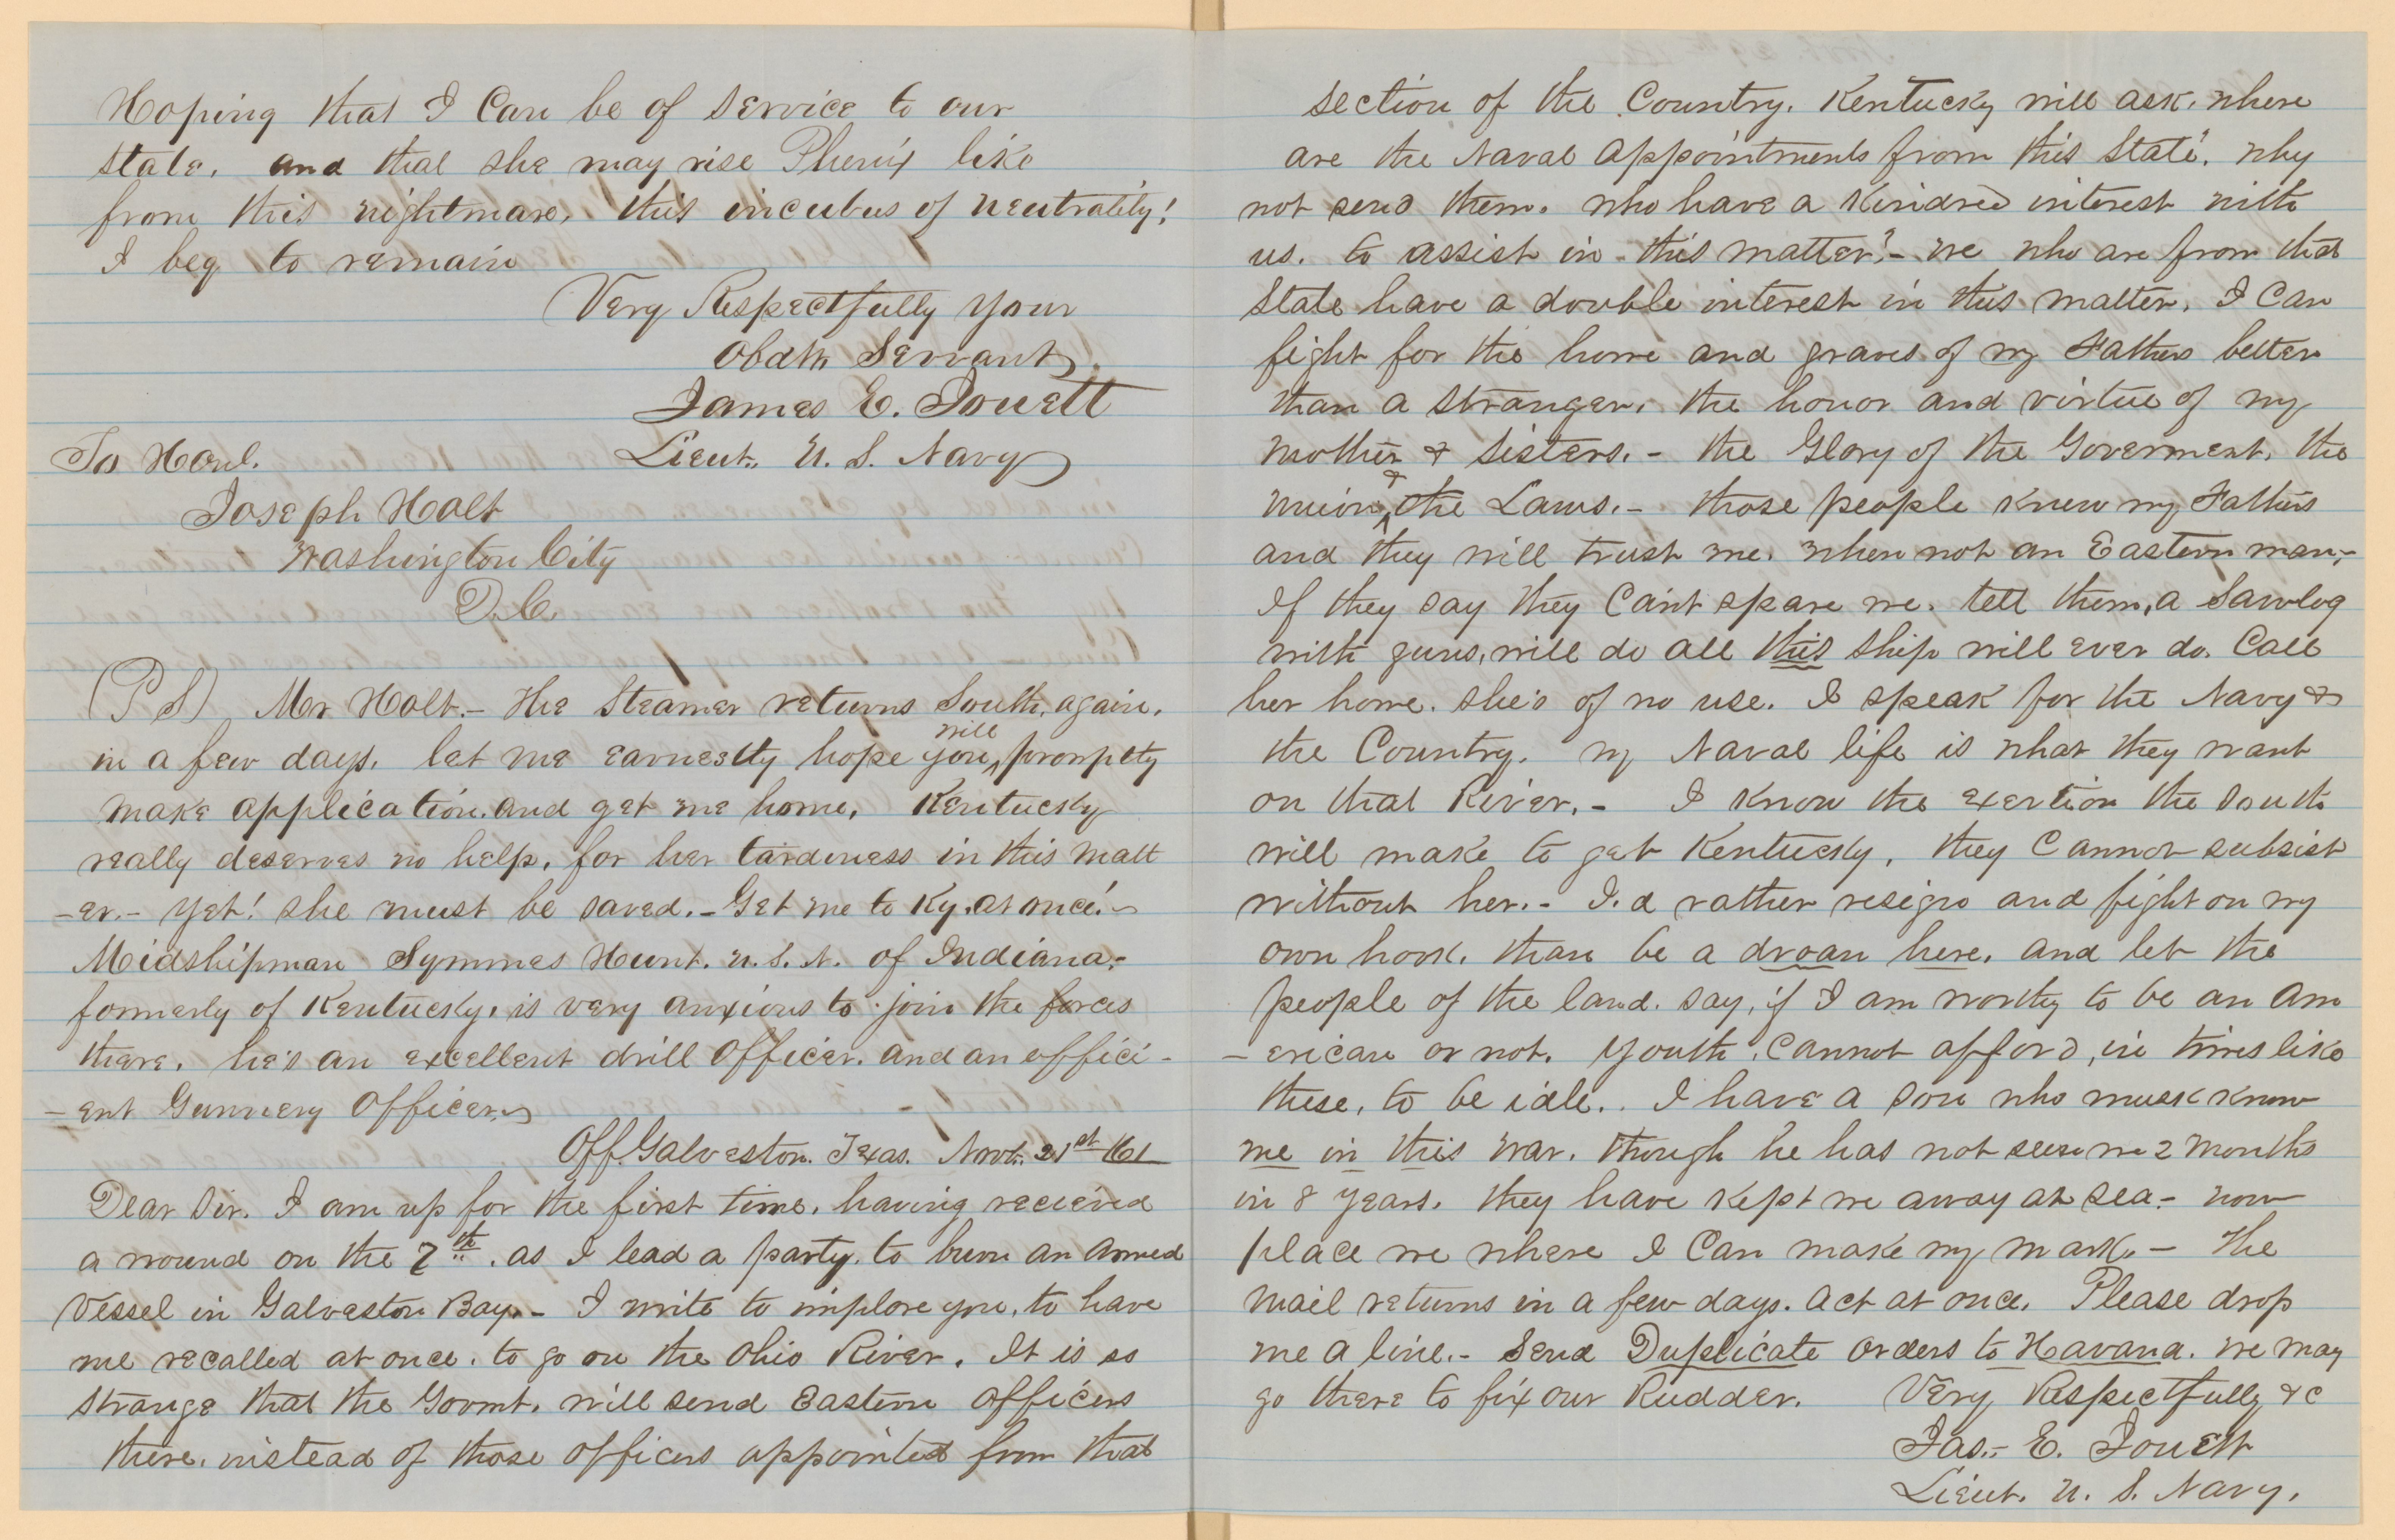 Hoping that I Can be of Service to our
State, and that she may rise Phenix like
from this nightmare, this incubus of neutrality!
I beg to remain
Very Respectfully your
Obdtn Servant
James E. Jouett
Lieut. U. S. Navy
To Honl.
Joseph Holt
Washington City
D.C.
(P S) Mr Holt.- The Steamer returns South, again,
in a few days. let me earnestly hope you will promptly
make application and get me home. Kentucky
really deserves no help, for her tardiness in this matt
-er.- Yet! she must be saved.- Get me to Ky. at once!-
Midshipman Symmes Hunt. U.S.N. of Indiana,-
formerly of Kentucky, is very anxious to join the forces
there. he's an excellent drill officer. and an effici-
-ent Gunnery Officer.
Off. Galveston. Texas. Novt. 21st /61
Dear Sir. I am up for the first time, having recieved
a wound on the 7th. as I lead a party. to burn an armed
Vessel in Galveston Bay.- I write to implore you, to have
me recalled at once. to go on the Ohio River. It is so
strange that the Govmt. will send Eastern officers
there, instead of those officers appointed from that
section of the Country. Kentucky will ask. where
are the Naval appointments from this State'. why
not send them. who have a Kindred interest with
us. to assist in this matter?- we who are from that
State have a double interest in this matter. I Can
fight for the home and graves of my Fathers better
than a stranger. the honor and virtue of my
mother & sisters.- the Glory of the Goverment. the
union, & the Laws.- those people knew my Fathers
and they will trust me. when not an Eastern man,-
If they say they Can't spare me. tell them, a Sawlog
with guns, will do all this ship will ever do. Call
her home. she's of no use. I speak for the Navy &
the Country. my Naval life is what they want
on that River.- I know the exertion the South
will make to get Kentucky, they Cannot subsist
without her.- I.d rather resign and fight on my
own hook. than be a droan here. and let the
people of the land. say, if I am worthy to be an Am
-erican or not. Youth. Cannot afford, in times like
these, to be idle.. I have a son who must know
me in this war. though he has not seen me 2 months
in 8 years. they have kept me away at sea.- now
place me where I Can make my mark.- The
mail returns in a few days. act at once. Please drop
me a line.- Send Duplicate orders to Havana. we may
go there to fix our Rudder. Very Respectfully &c
Jas.- E. Jouett
Lieut. U. S. Navy.